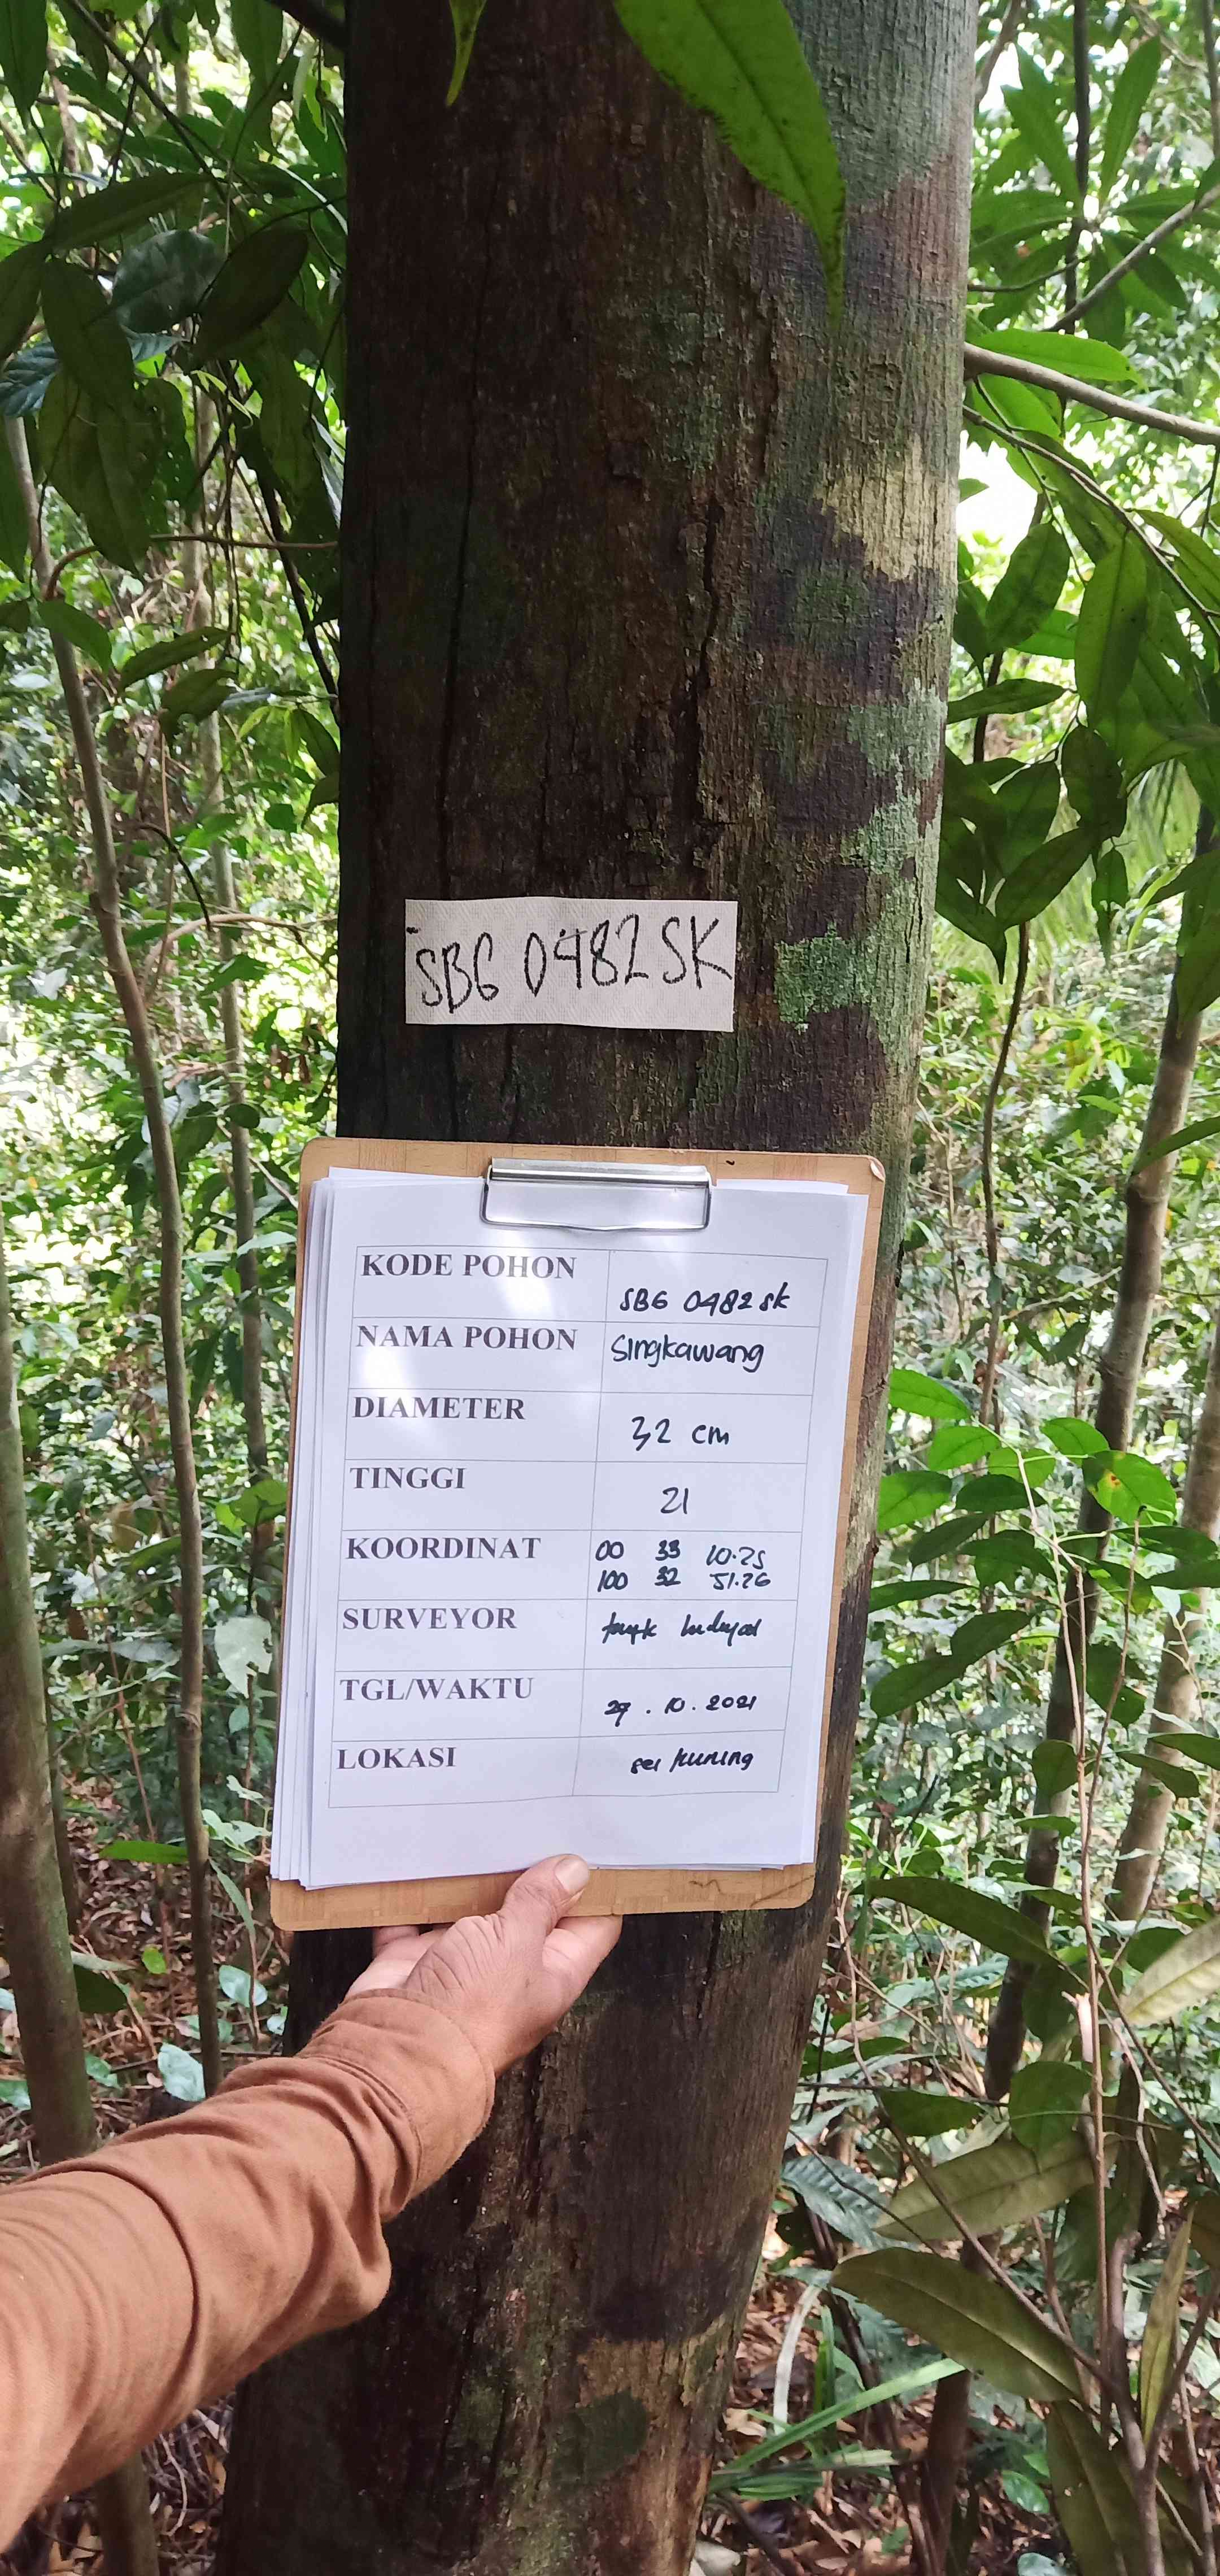 SBG 0482 SK
KODE POHON SBG 0482 SK
NAMA POHON Singkawang
DIAMETER 32 cm
TINGGI 21
KOORDINAT 00 33 10.25
100 32 51.26
SURVEYOR
TGL/WAKTU 27.10.2021
LOKASI sei kuning